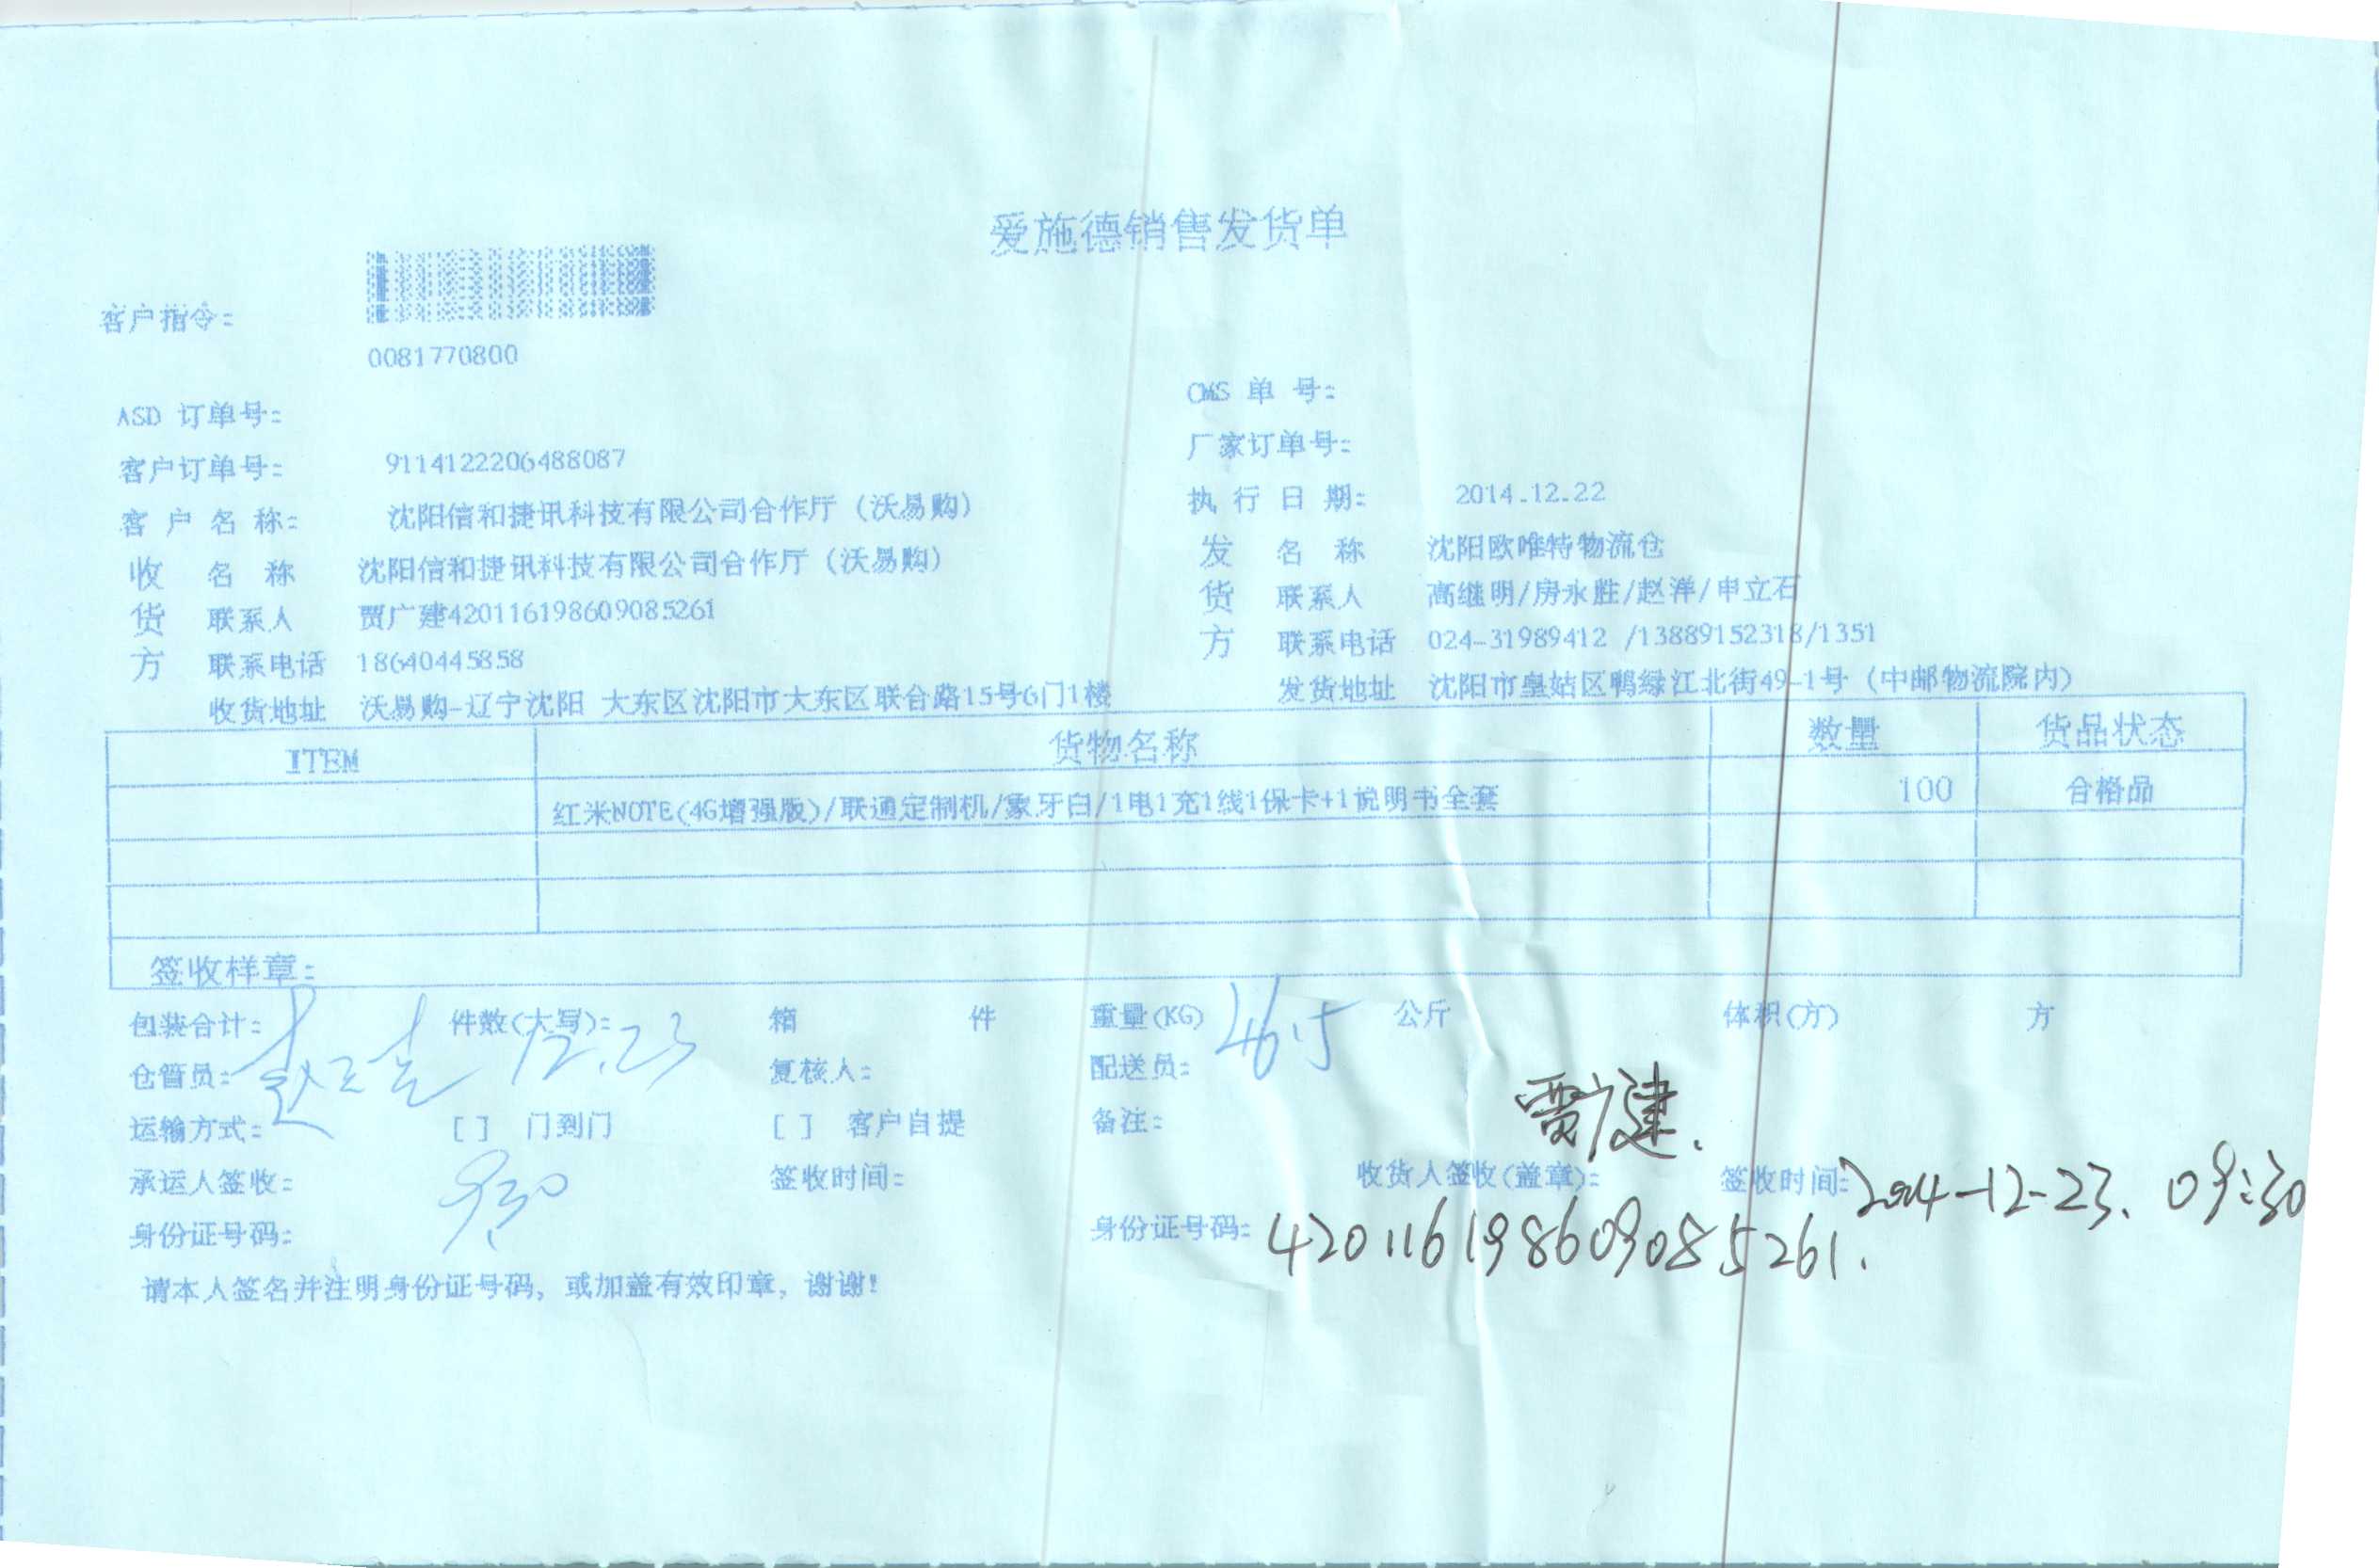 爱施德销售发货单
客户指令:
0081770800
ASD 订单号:
CMS 单 号:
客户订单号: 9114122206488087
厂家订单号:
客 户 名 称: 沈阳信和捷讯科技有限公司合作厅（沃易购）
执 行 日 期: 2014.12.22
收 名 称 沈阳信和捷讯科技有限公司合作厅（沃易购）
发 名 称 沈阳欧唯特物流仓
货 联系人 贾广建420116198609085261
货 联系人 高继明/房永胜/赵洋/申立石
方 联系电话 18640445858
方 联系电话 024-31989412 /13889152318/1351
收货地址 沃易购-辽宁沈阳 大东区沈阳市大东区联合路15号6门1楼
发货地址 沈阳市皇姑区鸭绿江北街49-1号（中邮物流院内）
ITEM 货物名称 数量 货品状态
红米NOTE(4G增强版)/联通定制机/象牙白/1电1充1线1保卡+1说明书全套 100 合格品
签收样章:
包装合计: 件数(大写): 箱 件 重量(KG) 46.5 公斤 体积(方) 方
仓管员: 12.23 复核人: 配送员:
运输方式: [ ] 门到门 [ ] 客户自提 备注:
贾广建.
承运人签收: 9:30 签收时间: 收货人签收(盖章): 签收时间: 2014-12-23. 09:30
身份证号码: 身份证号码: 420116198609085261.
请本人签名并注明身份证号码，或加盖有效印章，谢谢!